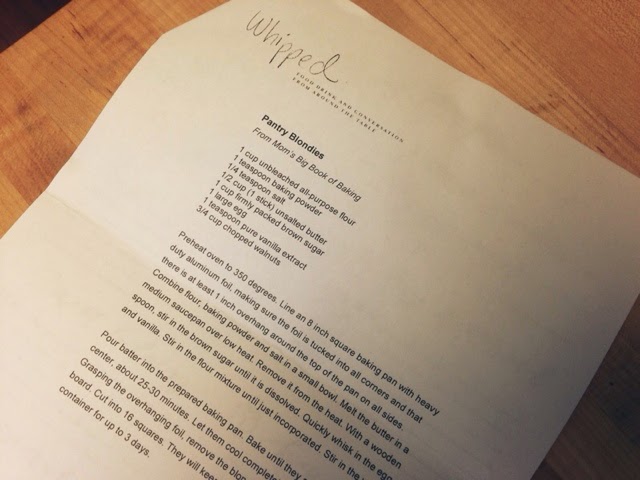 Whipped
FOOD DRINK AND CONVERSATION
FROM AROUND THE TABLE
Pantry Blondies
From Mom's Big Book of Baking
1 cup unbleached all-purpose flour
1 teaspoon baking powder
1/4 teaspoon salt
1/2 cup (1 stick) unsalted butter
1 cup firmly packed brown sugar
1 large egg
1 teaspoon pure vanilla extract
3/4 cup chopped walnuts
Preheat oven to 350 degrees. Line an 8 inch square baking pan with heavy
duty aluminum foil, making sure the foil is tucked into all corners and that
there is at least 1 inch overhang around the top of the pan on all sides.
Combine flour, baking powder and salt in a small bowl. Melt the butter in a
medium saucepan over low heat. Remove it from the heat. With a wooden
spoon, stir in the brown sugar until it is dissolved. Quickly whisk in the egg
and vanilla. Stir in the flour mixture until just incorporated. Stir in the
Pour batter into the prepared baking pan. Bake until they
center, about 25-30 minutes. Let them cool
Grasping the overhanging foil, remove the
board. Cut into 16 squares. They will
container for up to 3 days.